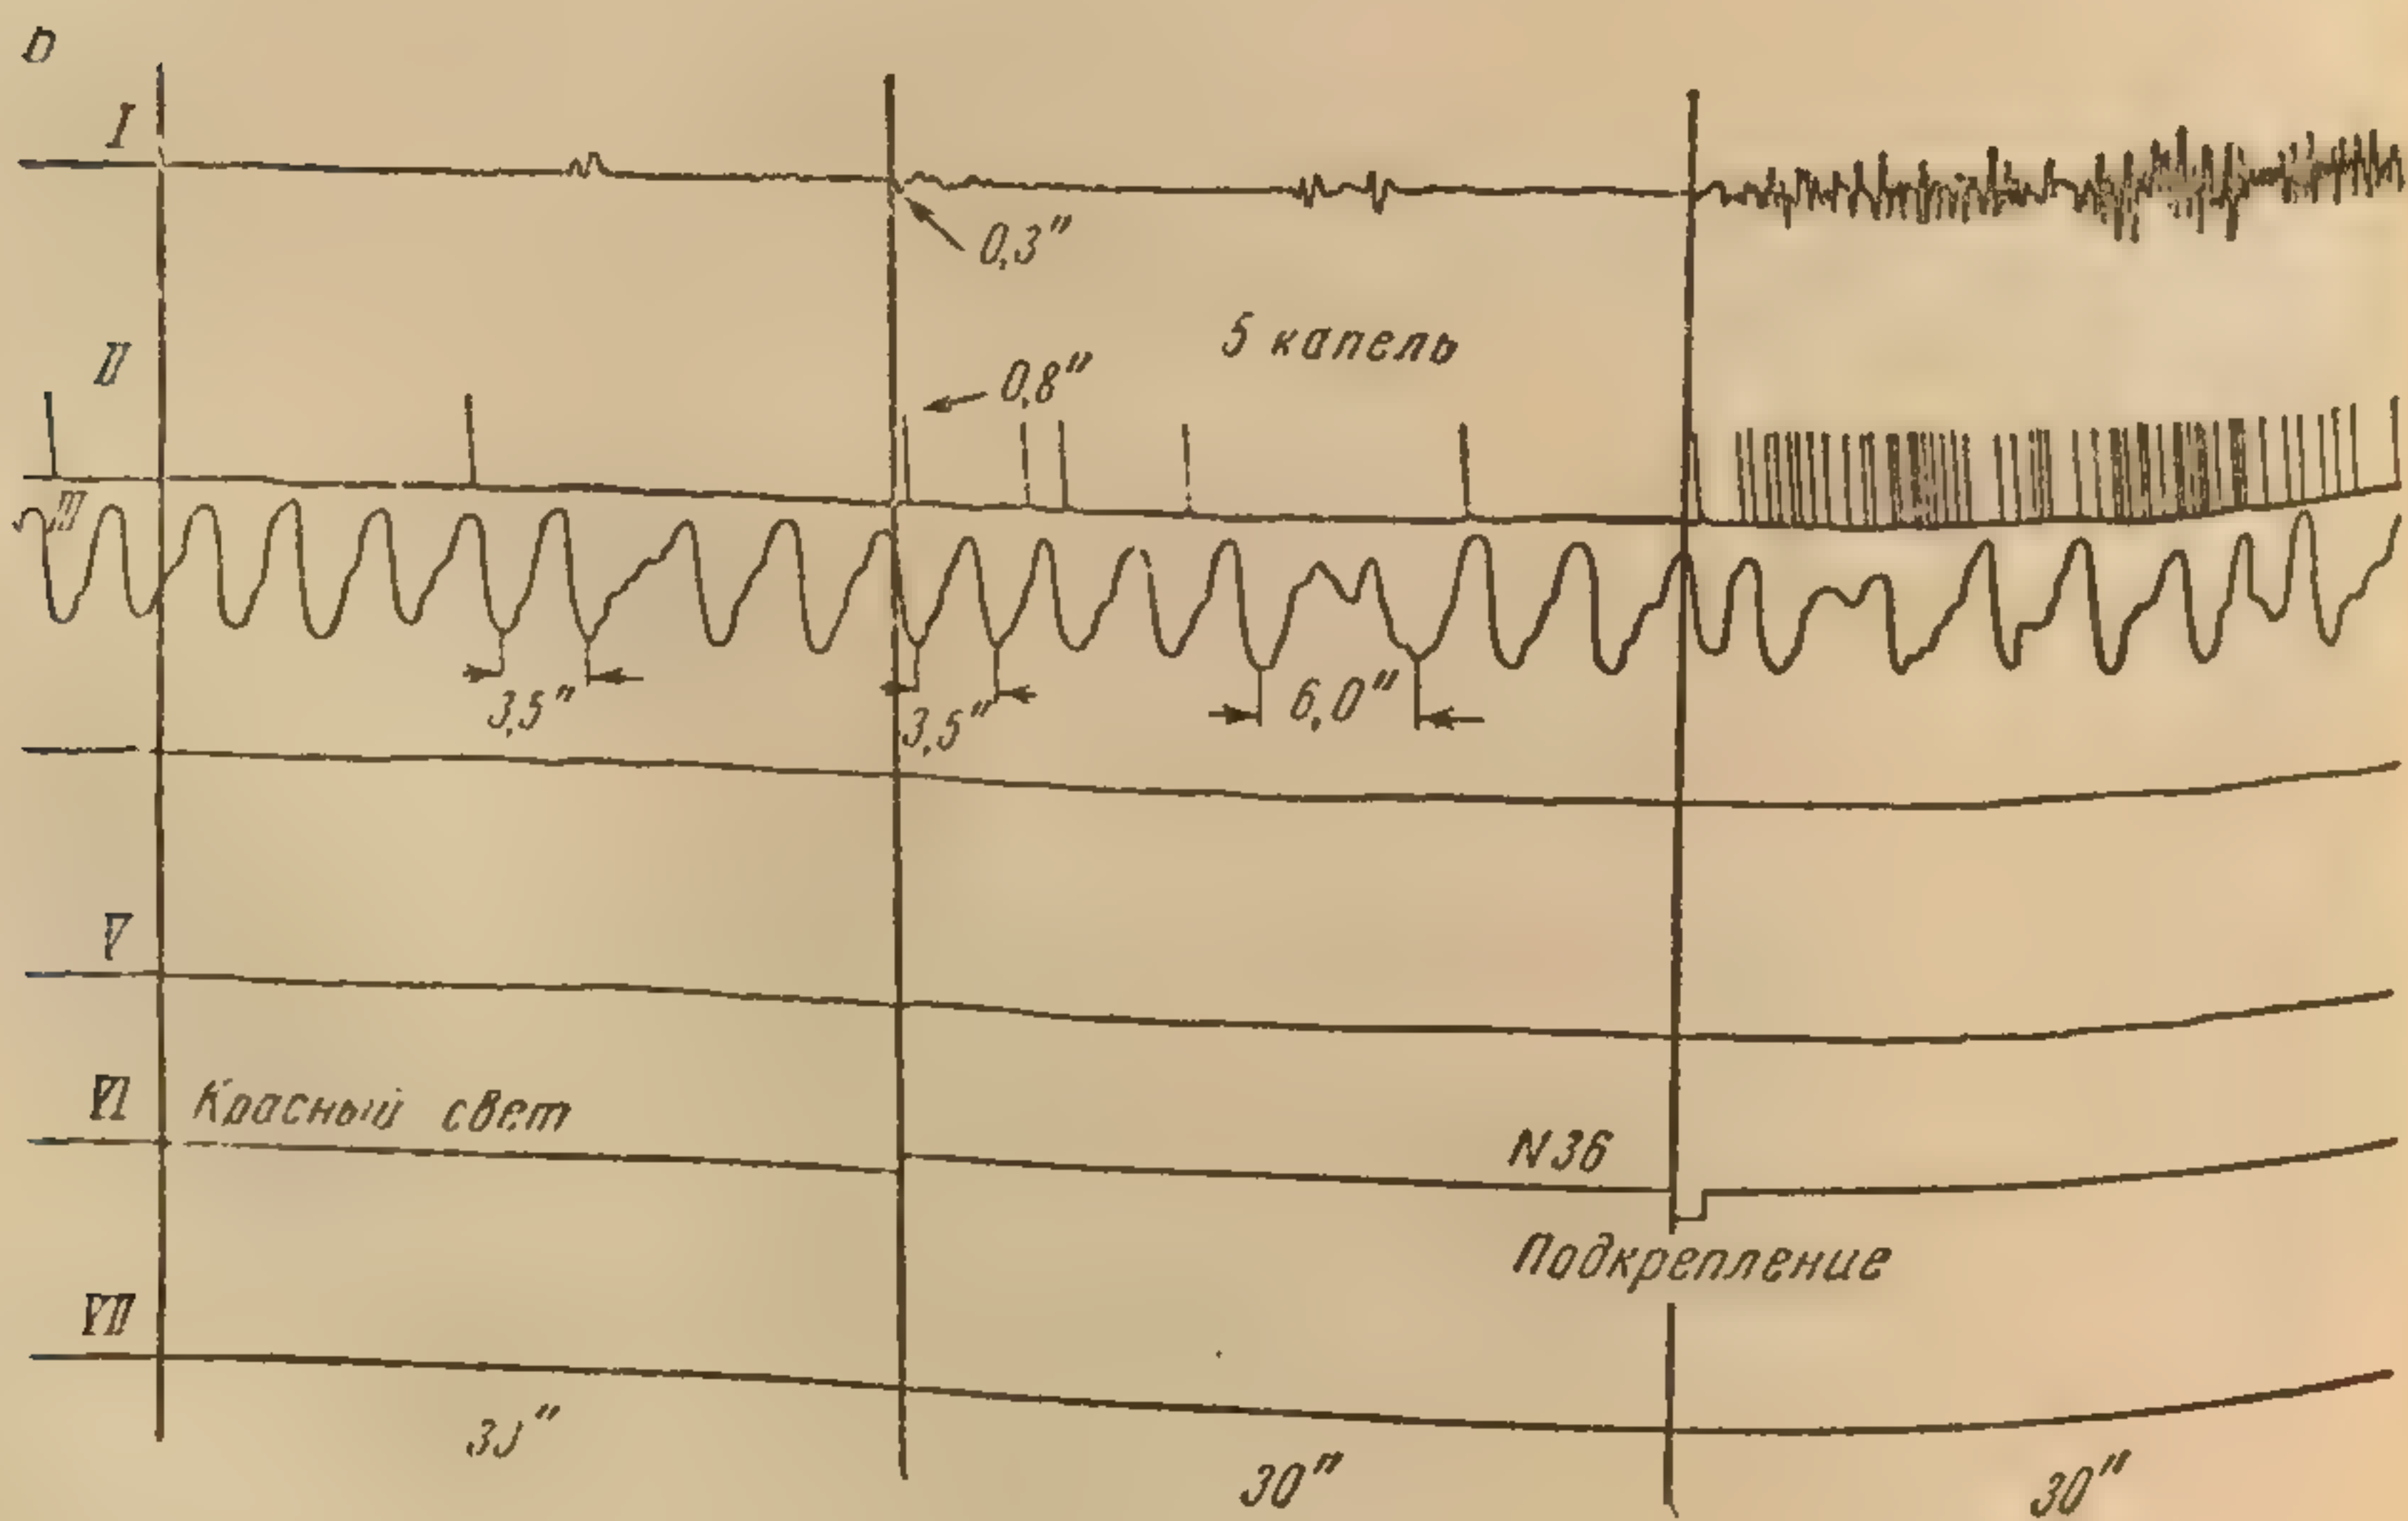 I
0,3"
5 капель
II
0,8"
III
3,5"
3,5"
6,0"
V
VI Красный свет
N 36
Подкрепление
VII
30"
30"